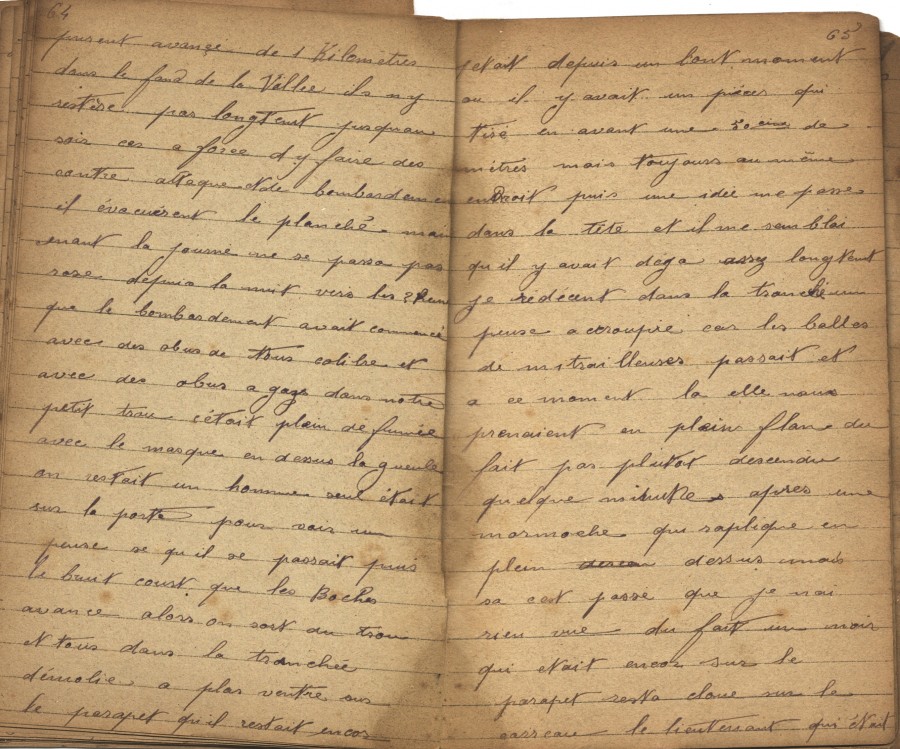 64
purent avancé de 1 Kilometres
dans le fond de la Vallée ils n y
restère pas longtemt jusquau
soir car a force d y faire des
contre attaque et de bombardemen
il évacuèrent le planché mai
enant la journe ne se passa pas
rose depuis la nuit vers les 2 heure
que le bombardement avait commencé
avec des obus de tous calibre et
avec des obus a gaze dans notre
petit trou c'était plein de fumée
avec le masque en dessus la gueule
on restait un homme seul était
sur la porte pour voir un
peuse se qu il se passait puis
le bruit court que les Boches
avance alors on sort du trou
et tous dans la tranchée
démolie a plas ventre sur
le parapet qu'il restait encor
65
jetait depuis un bont moment
ou il y avait un pièces qui
tiré en avant une 50 cine de
mitres mais toujours au même
endroit puis une idée me passe
dans la tête et il me semblai
qu il y avait dega assez longtemt
je rédécent dans la tranché un
peuse accroupie car les balles
de mitrailleuses passait et
a ce moment la elle nous
prenaient en plein flan du
fait pas plutot descendu
quelque minutre apres une
marmoche qui raplique en
plein dessus mais
sa cest passe que je nai
rien vue du fait un noir
qui etait encor sur le
parapet resta cloue sur le
carreau le lieutenant qui était